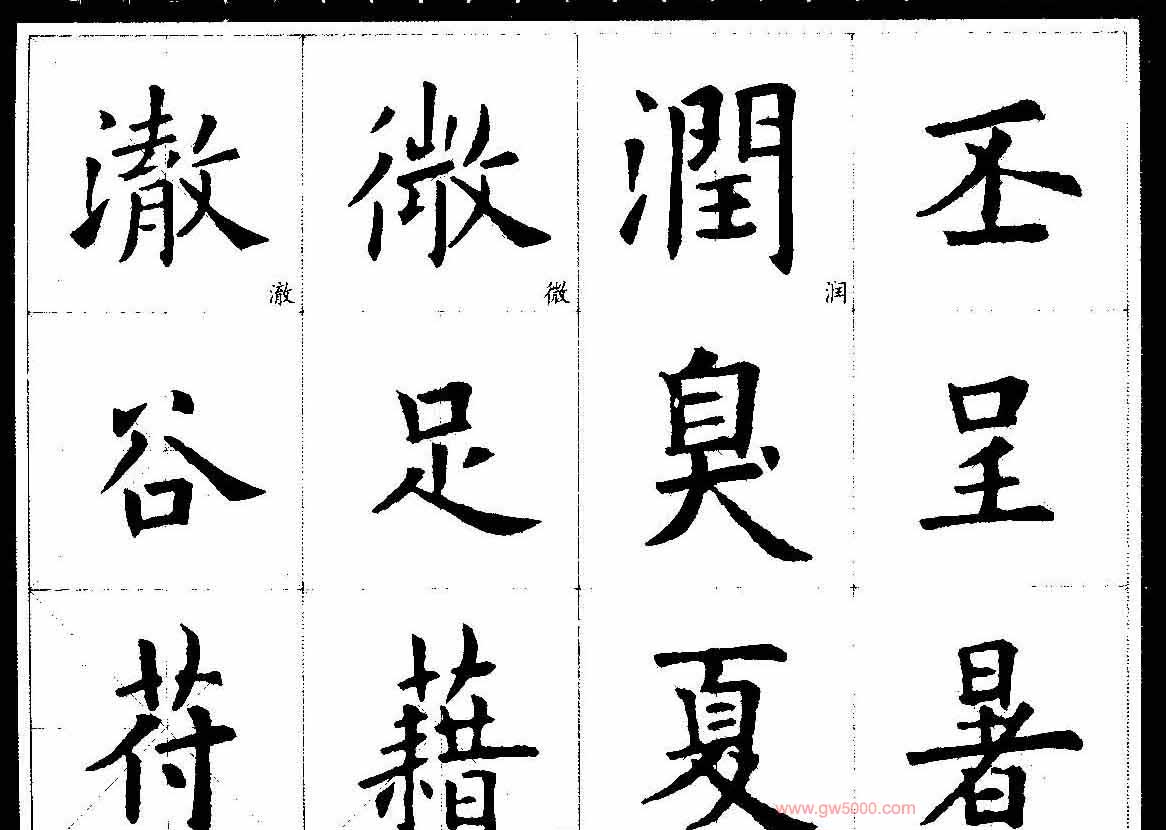 澈 微 潤 丕
澈 微 润
谷 足 臭 呈
苻 藉 夏 暑
www.gw5000.com